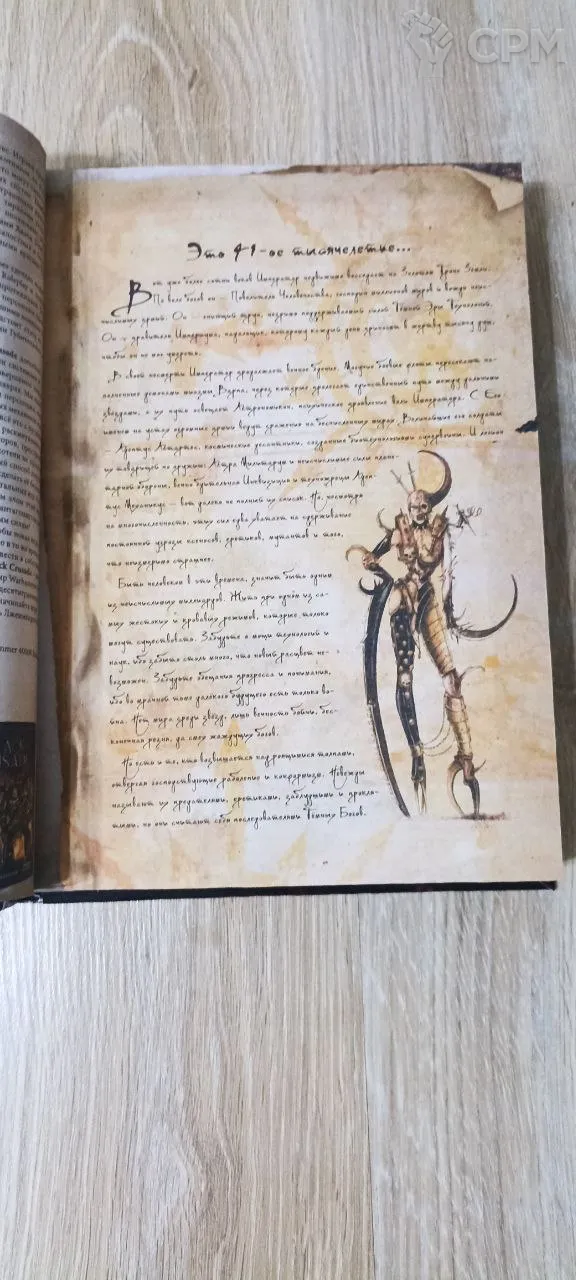 СРМ
Это 41-ое тысячелетие...
Вот уже более сотни веков Император недвижимо восседает на Золотом Троне Земли.
По воле богов он – Повелитель Человечества, господин миллионов миров и вождь неис-
числимых армий. Он – гниющий труп, незримо поддерживаемый силой Тёмной Эры Технологий.
Он – правитель Империума, падальщик, которому каждый день приносят в жертву тысячу душ,
чтобы он не мог умереть.
В своей несмерти Император продолжает вечное бдение. Могучие боевые флоты пересекают на-
полненные демонами миазмы Варпа, через которые пролегает единственный путь между дальними
звёздами, а их пути освещает Астрономикон, психическое проявление воли Императора. С Его
именем на устах огромные армии ведут сражения на бесчисленных мирах. Величайшие его солдаты
– Адептус Астартес, космические десантники, созданные биотехнологиями суперв́оины. И легион
их товарищей по оружию: Астра Милитарум и неисчислимые силы плане-
тарной обороны, вечно бдительная Инквизиция и техножрецы Адеп-
тус Механикус – вот далеко не полный их список. Но, несмотря
на многочисленность, этих сил едва хватает на сдерживание
постоянной угрозы ксеносов, еретиков, мутантов и того,
что неизмеримо страшнее.
Быть человеком в эти времена, значит быть одним
из неисчислимых миллиардов. Жить при одном из са-
мых жестоких и кровавых режимов, которые только
могут существовать. Забудьте о мощи технологий и
наук, ибо забыто столь много, что новый расцвет не-
возможен. Забудьте обещания прогресса и понимания,
ибо во мрачной тьме далёкого будущего есть только во-
йна. Нет мира среди звёзд, лишь вечность бойни, бес-
конечная резня, да смех жаждущих богов.
Но есть и те, кто возвышается над роящимися толпами,
отвергая господствующие раболепие и конформизм. Невежды
называют их предателями, еретиками, заблудшими и прокля-
тыми, но они считают себя последователями Тёмных Богов.